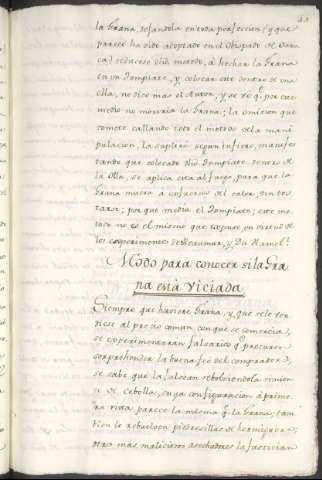 la Grana, dejandola en toda perfeccion; y que
parece ha sido adoptado en el Obispado de Oaxa-
ca) reducese dicho metodo, á hechar la Grana
en un Tompiate, y colocar este dentro de una
olla, no dice mas el Autor, y se ve q.e por este
medio no moriria la Grana; la omicion que
comete callando todo el metodo de la mani-
pulacion, la supliré segun infiero, manifes-
tando que colocado dicho Tompiate dentro de
la olla, se aplica esta al fuego, para que la
Grana muera á esfuerzos del calor, sin tos-
tarse; porque media el Tompiate: este me-
todo no es el mismo que expuse, en virtud de
los experimentos de Reaumur, y Du Hamel.
Modo para conocer si la Gra
na está viciada
Siempre que hubiere Grana, y que se le
al precio comun, con que se comercia,
se experimentarán falsarios q.e procuren
sorprehender la buena fée del comprador;
se sabe que la falsean rebolviendola simien-
te de Cebolla, cuya configuracion á prime-
ra vista parece la misma q.e la Grana; tam-
bien le rebuelven piedresillas de hormiguero;
otros mas maliciosos asechadores la factician